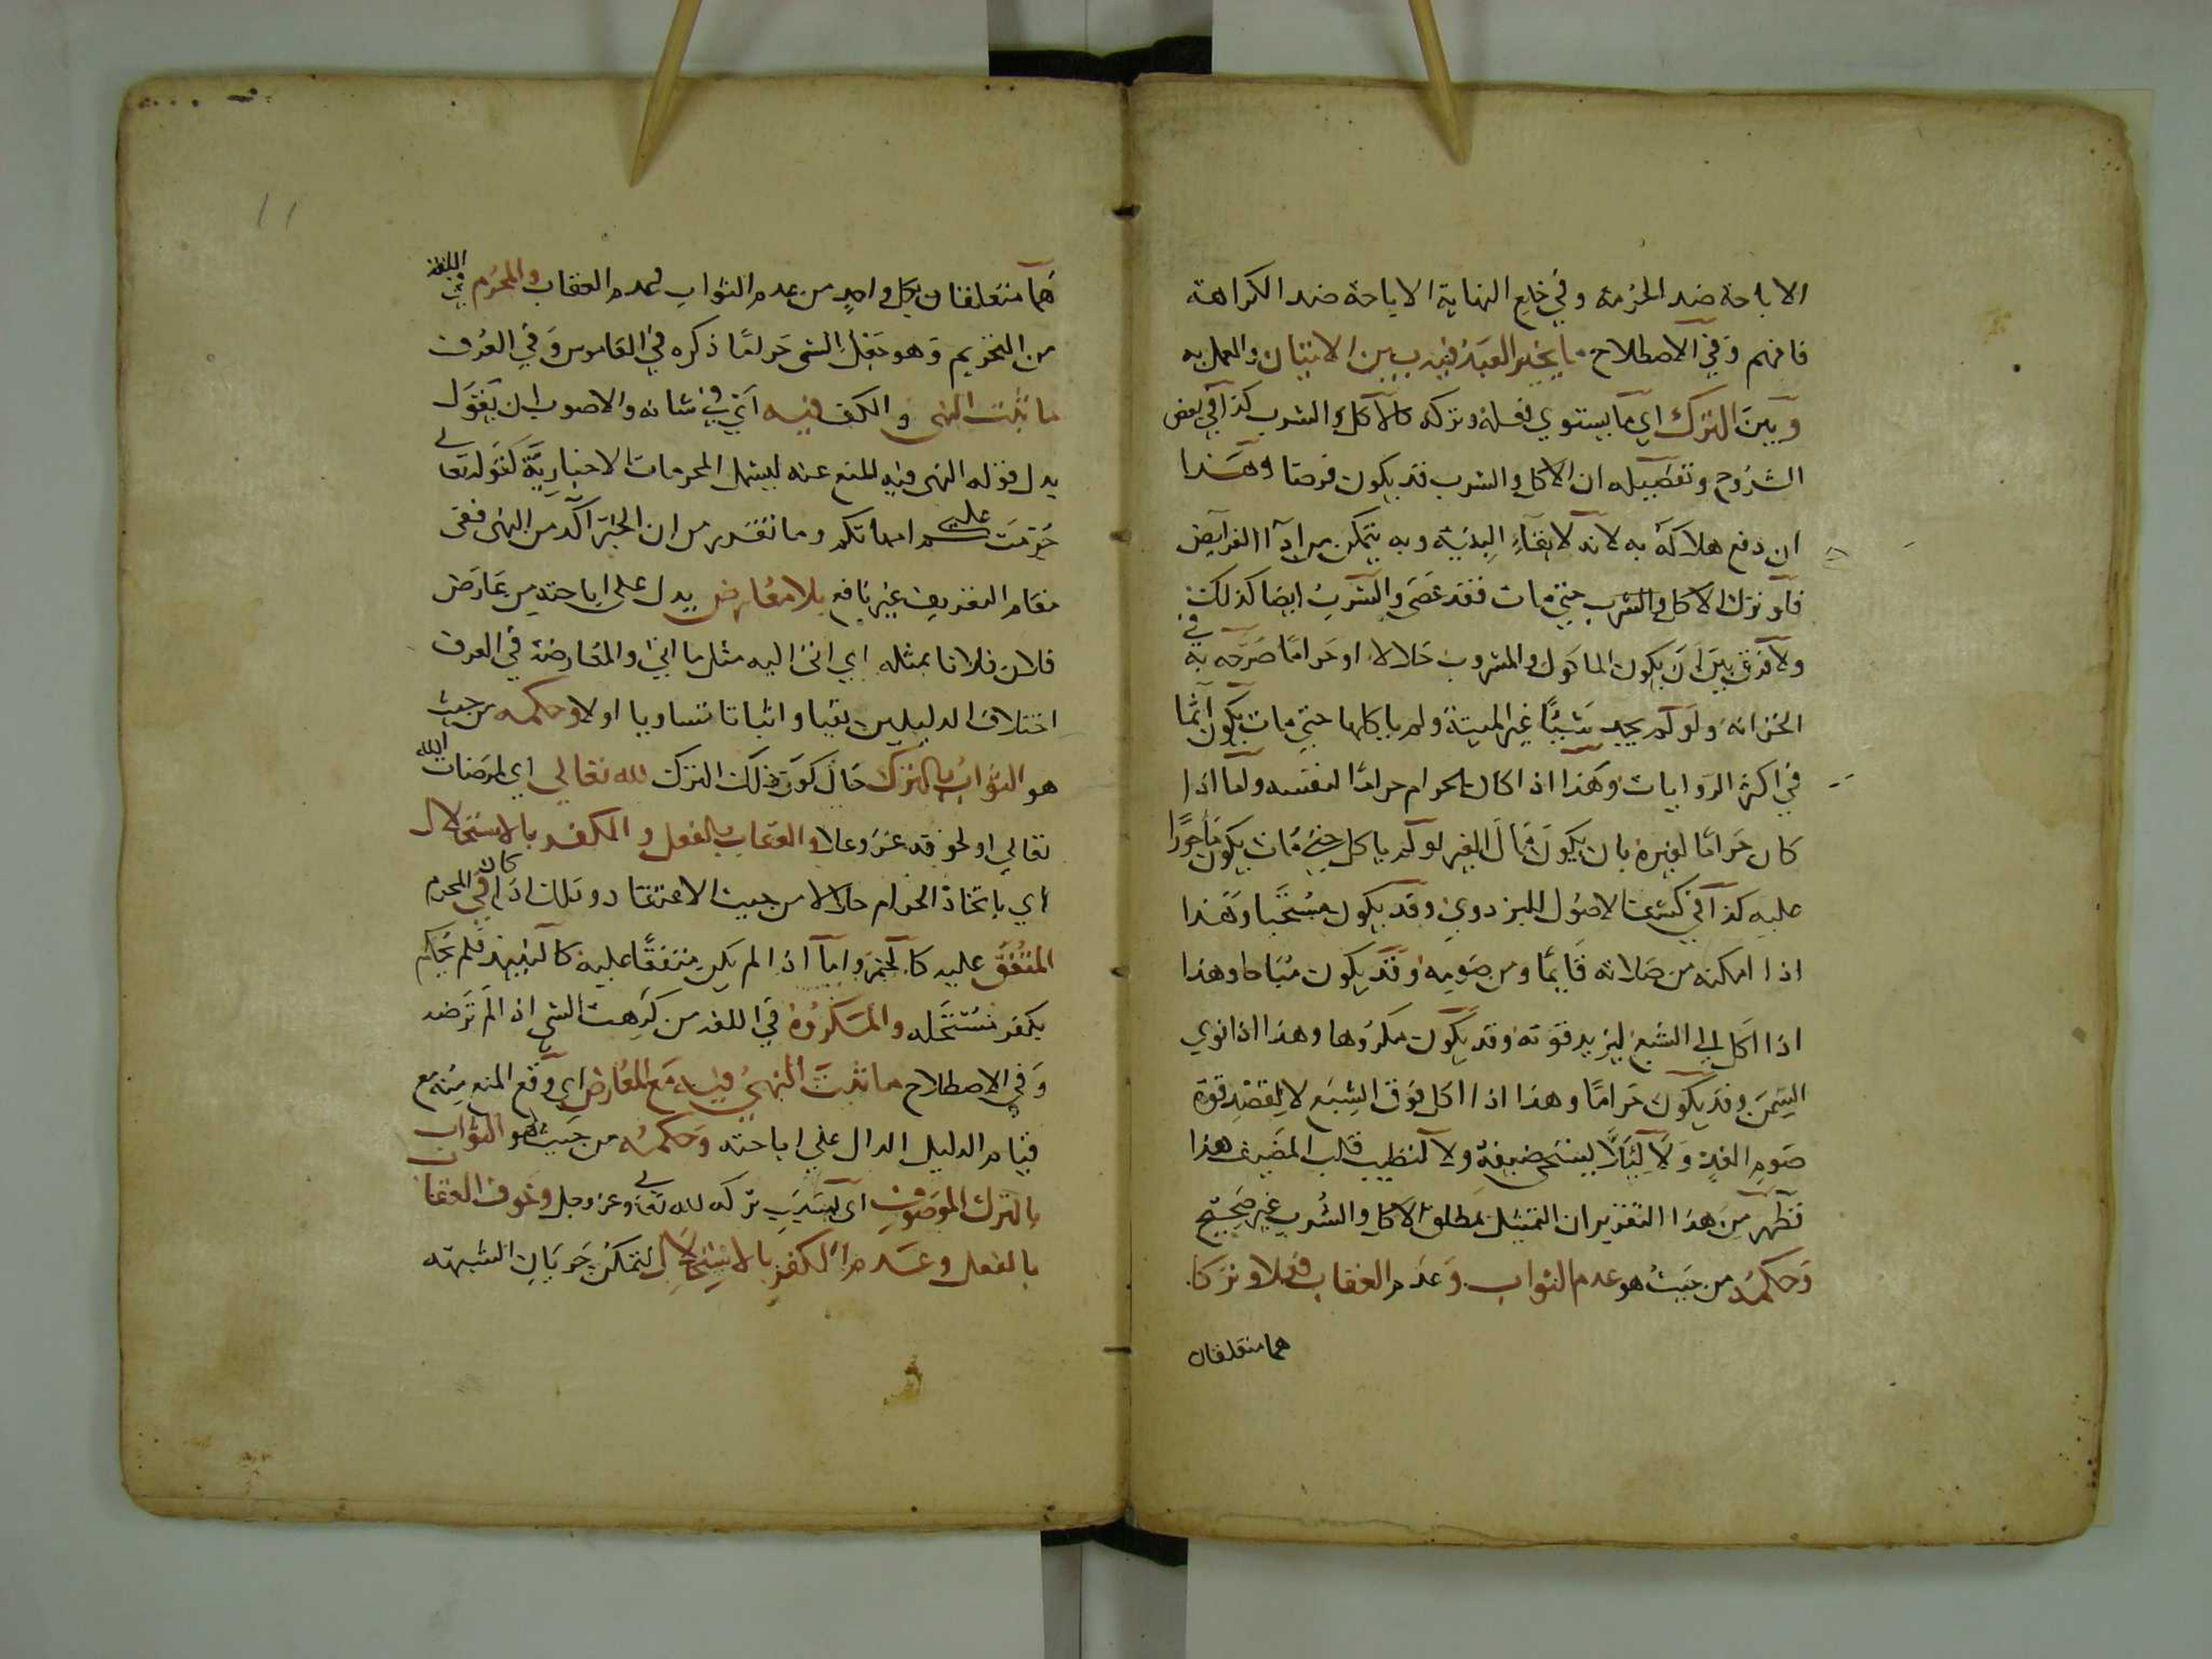 الاباحة ضد الحرمة وفي خلع النهاية الاباحة ضد الكراهة
فافهم وفي الاصطلاح ما يخير العبد فيه بين الاتيان والعمل به
وبين الترك اي ما يستوي فعله وتركه كالاكل والشرب كذا في بعض
الشروح وتفصيله ان الاكل والشرب قد يكون فرضا وهذا
ان دفع هلاكه به لانه لابقاء البنية وبه يتمكن من اداء الفرايض
فلو ترك الاكل والشرب حتى مات فقد عصى والشرب ايضا كذلك
ولا فرق بين ان يكون الماكول والمشروب حلالا او حراما صرحه به في
الخزانه ولو لم يجد شيئا غير الميتة ولم ياكلها حتى مات يكون آثما
في اكثر الروايات وهذا اذا كان الحرام حراما لنفسه واما اذا
كان حراما لغيره بان يكون مال الغير لو لم ياكل حتى مات يكون مأجورا
عليه كذا في كشف الاصول للبزدوي وقد يكون مستحبا وهذا
اذا امكنه من صلاته قايما ومن صومه وقد يكون مباحا وهذا
اذا اكل الى الشبع ليزيد قوته وقد يكون مكروها وهذا اذا نوي
السمن وقد يكون حراما وهذا اذا اكل فوق الشبع لا لقصد قوة
صوم الغد ولا لئلا يستحي ضيفه ولا لتطييب قلب المضيف هذا
فظهر من هذا التقرير ان التمثيل بمطلق الاكل والشرب غير صحيح
وحكمه من حيث هو عدم الثواب وعدم العقاب فعلا وتركا
هما متعلقان
11
هما متعلقان بكل واحد من عدم الثواب وعدم العقاب والمحرم في اللغة
من التحريم وهو جعل الشي حراما ذكره في القاموس وفي العرف
ما ثبت النهي والكف فيه اي في شانه والاصوب ان يقول
بدل قوله النهي فيه المنع عنه ليشمل المحرمات الاخبارية كقوله تعالى
حرمت عليكم امهاتكم وما تقدم من ان الخبر آكد من النهي ففي
مقام التعريف غير نافع بلا معارض يدل على اباحته من عارض
فلان فلانا بمثله اي اتى اليه مثل ما اتى والمعارضة في العرف
اختلاف الدليلين نفيا واثباتا تساويا اولا وحكمه من حيث
هو الثواب بالترك حال كون ذلك الترك لله تعالى اي لمرضات الله
تعالى او لخوفه عز وعلا والعقاب بالفعل والكفر بالاستحلال
اي باتخاذ الحرام حلالا من حيث الاعتقاد وذلك اذا كان في المحرم
المتفق عليه كالخمر واما اذا لم يكن متفقا عليه كالنبيذ فلم يحكم
بكفر مستحله والمكروه في اللغة من كرهت الشي اذا لم ترضه
وفي الاصطلاح ما ثبت النهي فيه مع المعارض اي وقع المنع منه مع
قيام الدليل الدال علي اباحته وحكمه من حيث هو الثواب
بالترك الموصوف اي بسبب تركه لله تعالى وعز وجل وخوف العقاب
بالفعل وعدم الكفر بالاستحلال لتمكن جريان الشبهة